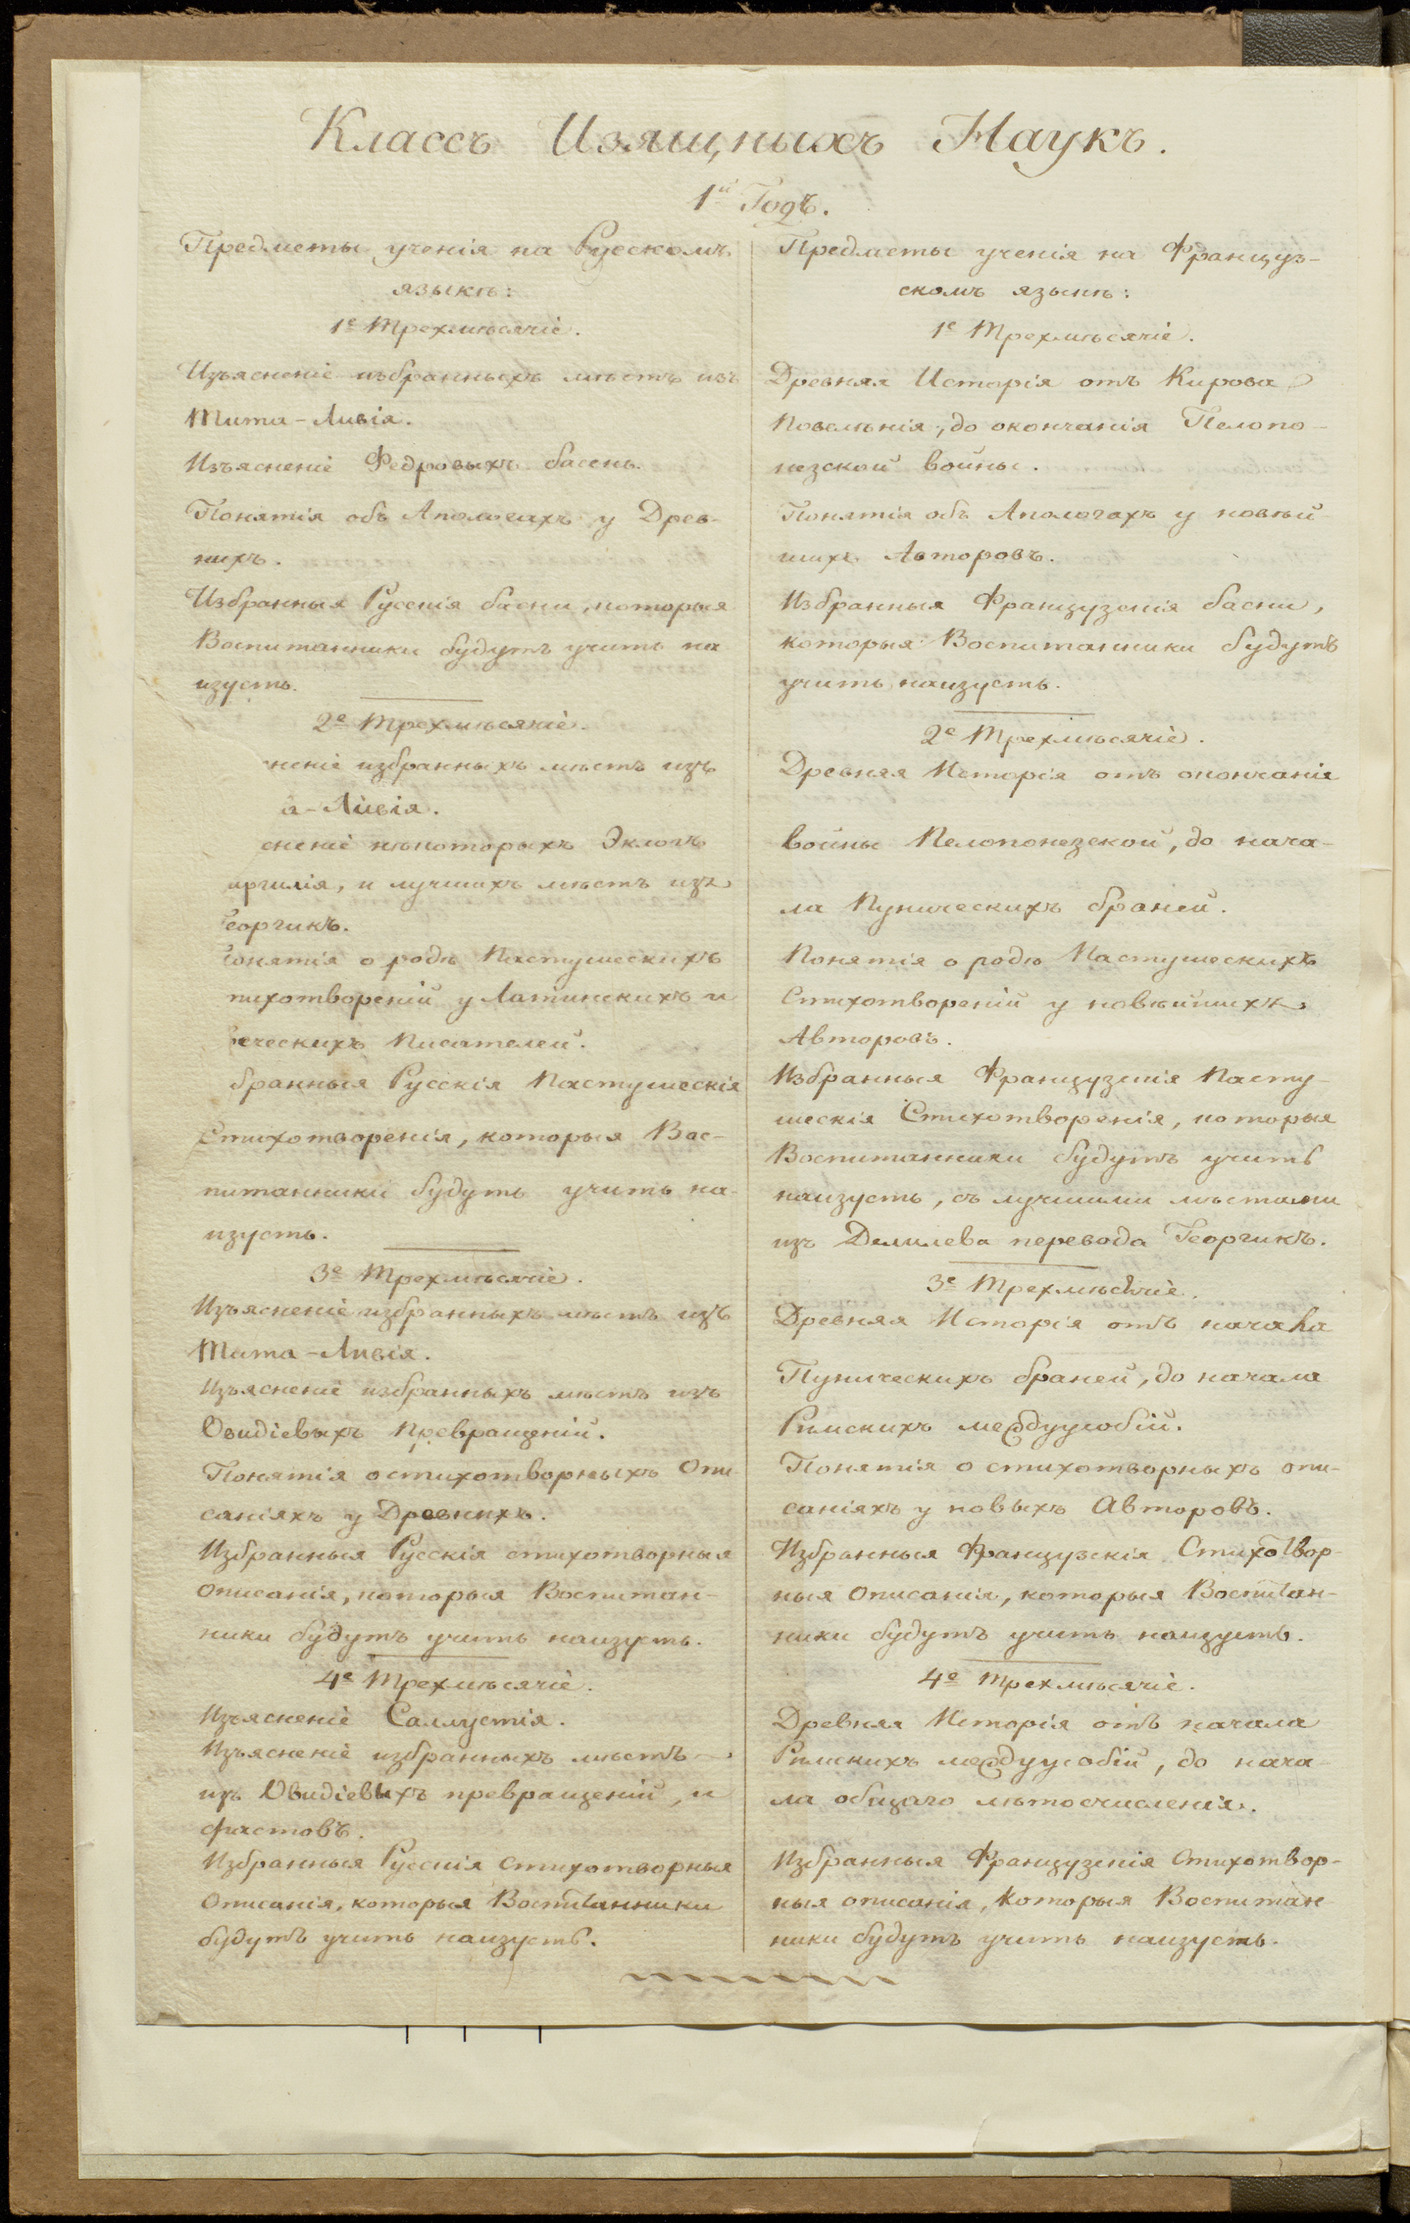 Классъ Изящныхъ Наукъ.
1й Годъ.
Предметы ученія на Русскомъ
языкѣ:
1е Трехмѣсячіе.
Изъясненіе избранныхъ мѣстъ изъ
Тита-Ливія.
Изъясненіе Федровыхъ басень.
Понятія объ Апологахъ у Древ-
нихъ.
Избранныя Русскія басни, которыя
Воспитанники будутъ учить на
изусть.
2е Трехмѣсячіе.
неніе избранныхъ мѣстъ изъ
а-Ливія.
сненіе нѣкоторыхъ Эклогъ
иргилія, и лучшихъ мѣстъ изъ
еоргикъ.
онятія о родѣ Пастушескихъ
тихотвореній у Латинскихъ и
еческихъ Писателей.
бранныя Русскія Пастушескія
Стихотворенія, которыя Вос-
питанники будутъ учить на-
изусть.
3е Трехмѣсячіе.
Изъясненіе избранныхъ мѣстъ изъ
Тита-Ливія.
Изъясненіе избранныхъ мѣстъ изъ
Овидіевыхъ Превращеній.
Понятія о стихотворныхъ Опи
саніяхъ у Древнихъ.
Избранныя Русскія стихотворныя
Описанія, которыя Воспитан-
ники будутъ учить наизусть.
4е Трехмѣсячіе.
Изъясненіе Саллустія.
Изъясненіе избранныхъ мѣстъ
изъ Овидіевыхъ превращеній, и
фастовъ.
Избранныя Русскія Стихотворныя
Описанія, которыя Воспитанники
будутъ учить наизусть.
Предметы ученія на Француз-
скомъ языкѣ:
1е Трехмѣсячіе.
Древняя Исторія отъ Кирова
Повелѣнія, до окончанія Пелопо-
незской войны.
Понятія объ Апологахъ у новѣй
шихъ Авторовъ.
Избранныя Французскія басни,
которыя Воспитанники будутъ
учить наизусть.
2е Трехмѣсячіе.
Древняя Исторія отъ окончанія
войны Пелопонезской, до нача-
ла Пуническихъ браней.
Понятія о родѣ Пастушескихъ
Стихотвореній у новѣйшихъ
Авторовъ.
Избранныя Французскія Пасту-
шескія Стихотворенія, которыя
Воспитанники будутъ учить
наизусть, съ лучшими мѣстами
изъ Делилева перевода Георгикъ.
3е Трехмѣсячіе.
Древняя Исторія отъ начала
Пуническихъ браней, до начала
Римскихъ междуусобій.
Понятія о стихотворныхъ опи-
саніяхъ у новыхъ Авторовъ.
Избранныя Французскія Стихотвор-
ныя Описанія, которыя Воспитан-
ники будутъ учить наизусть.
4е Трехмѣсячіе.
Древняя Исторія отъ начала
Римскихъ междуусобій, до нача-
ла общаго лѣтосчисленія.
Избранныя Французскія Стихотвор-
ныя описанія, которыя Воспитан
ники будутъ учить наизусть.